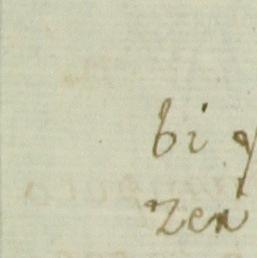 bi
zen